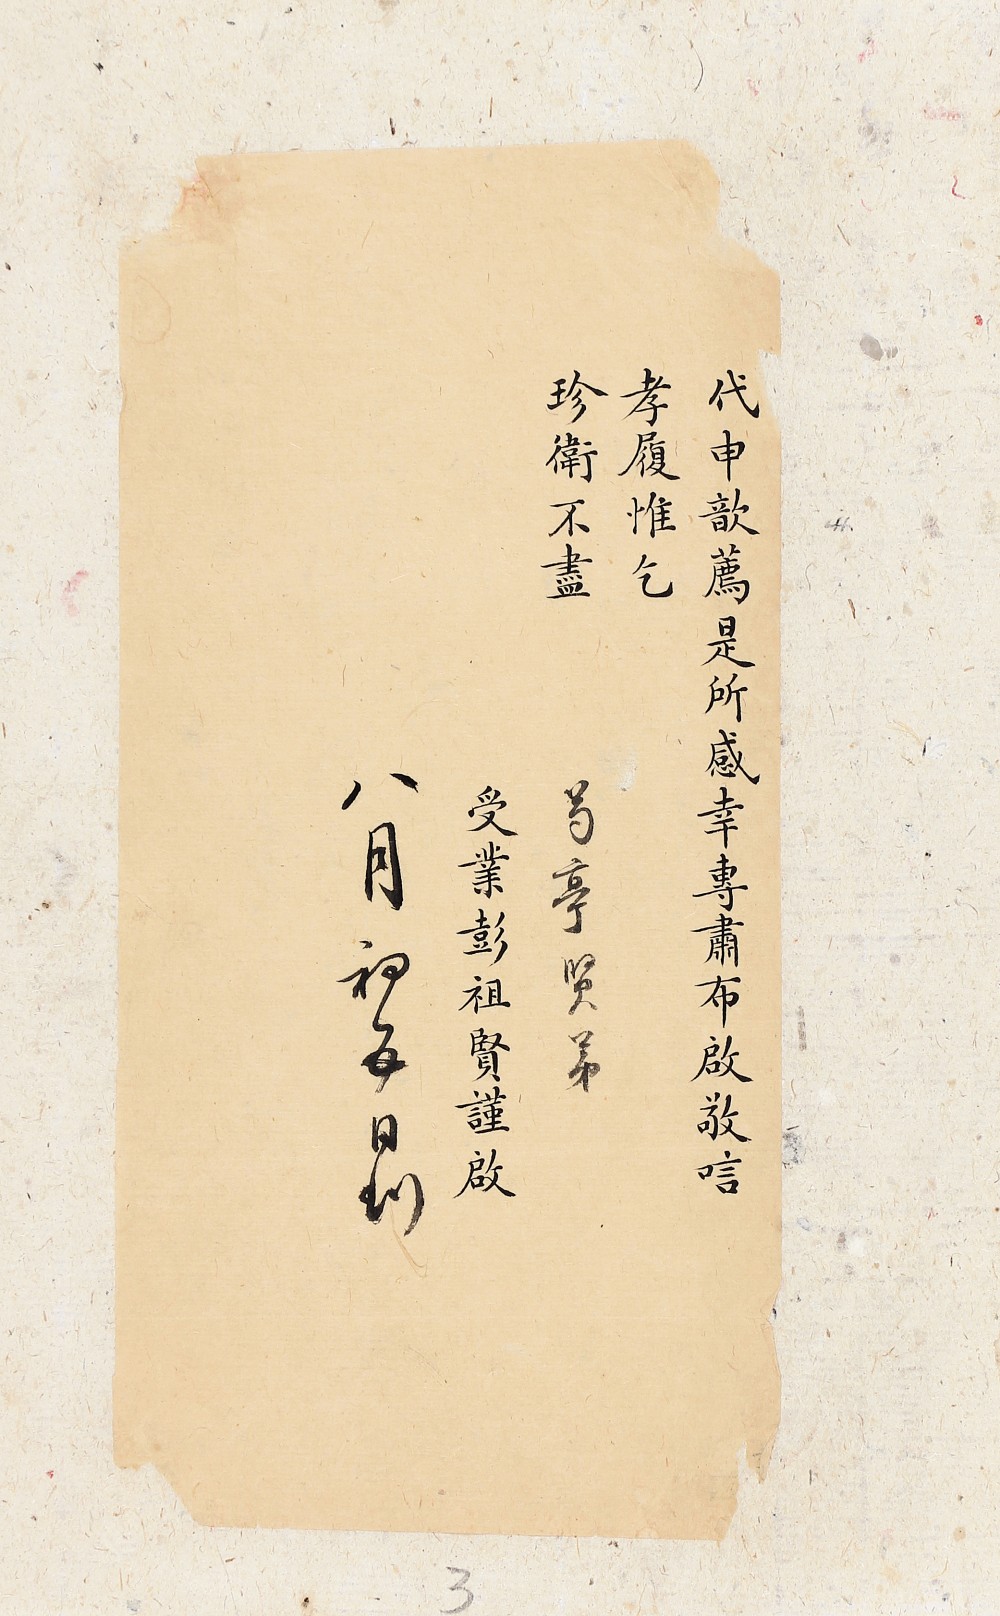 代申歆薦是所感幸專肅布啟敬唁
孝履惟乞
珍衛不盡
芍亭賢弟
受業彭祖賢謹啟
八月初五日
3